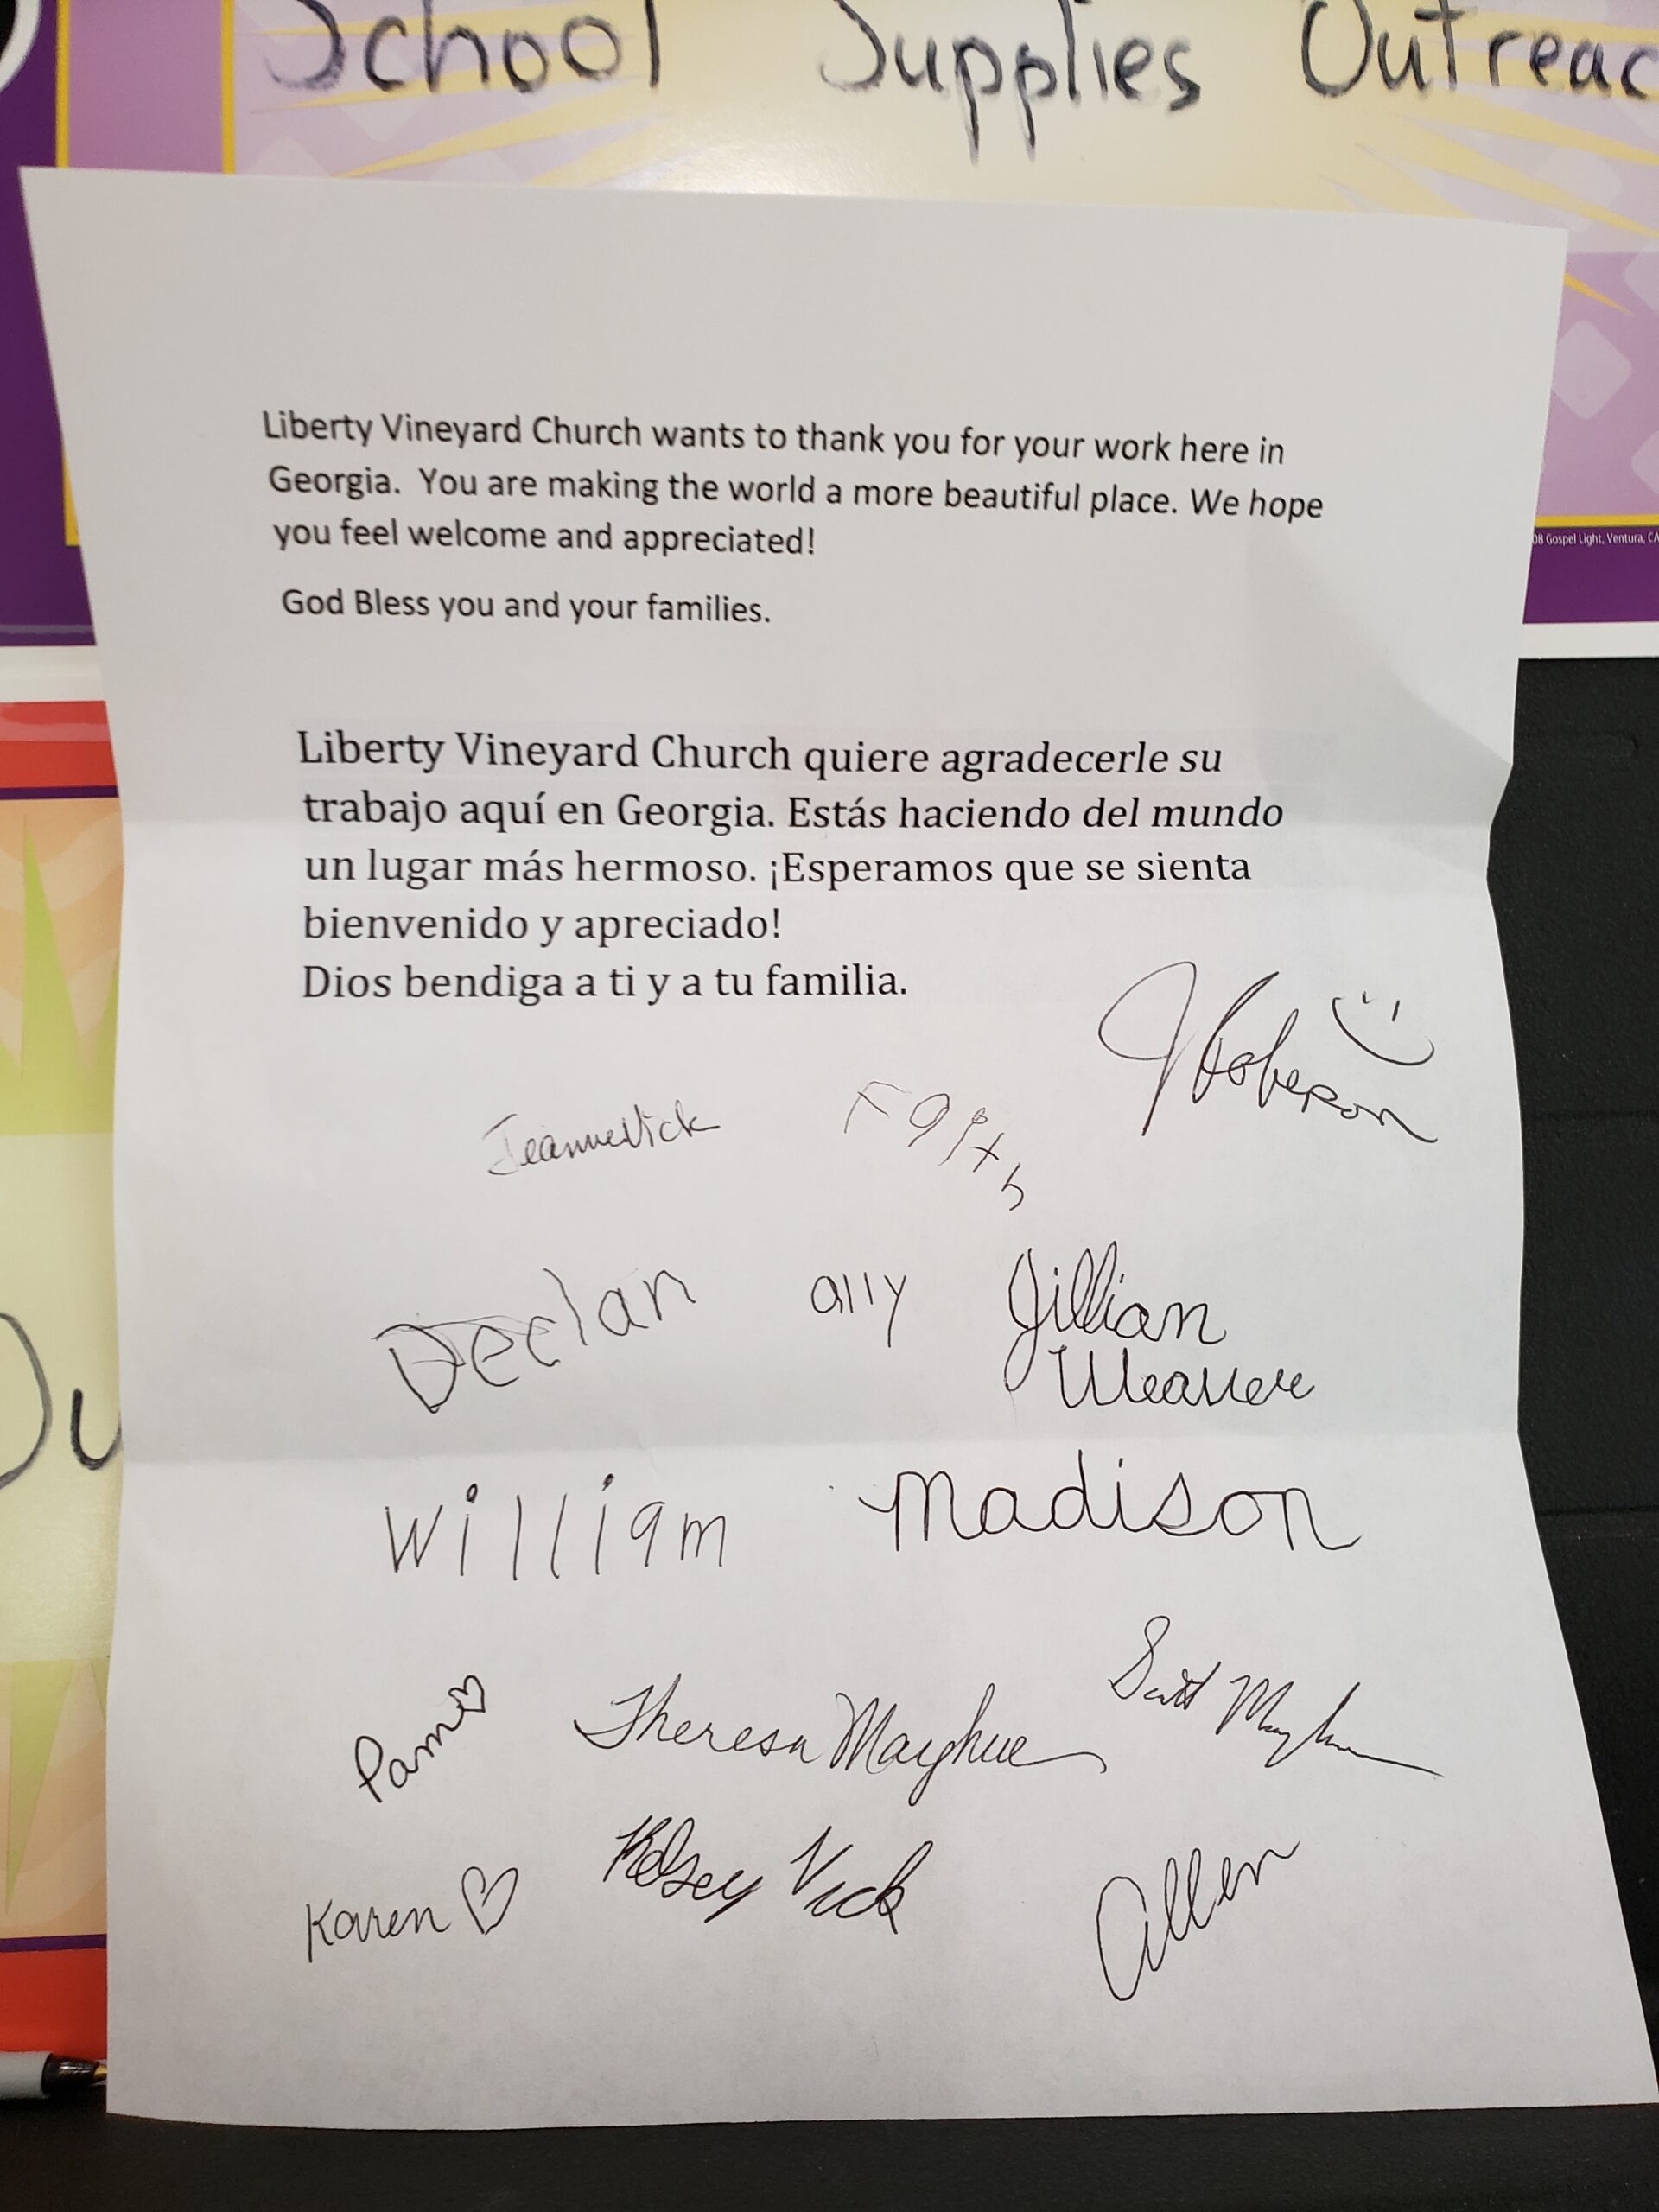 School Supplies Outreac
08 Gospel Light, Ventura, CA
Liberty Vineyard Church wants to thank you for your work here in
Georgia. You are making the world a more beautiful place. We hope
you feel welcome and appreciated!
God Bless you and your families.
Liberty Vineyard Church quiere agradecerle su
trabajo aquí en Georgia. Estás haciendo del mundo
un lugar más hermoso. ¡Esperamos que se sienta
bienvenido y apreciado!
Dios bendiga a ti y a tu familia.
JRoberson
Jeanne Vick
Faith
Declan
ally
Jillian
Weaver
William
Madison
Pam
Theresa Mayhue
Scott Mayhue
Karen
Kelsey Vick
Allen
Ou